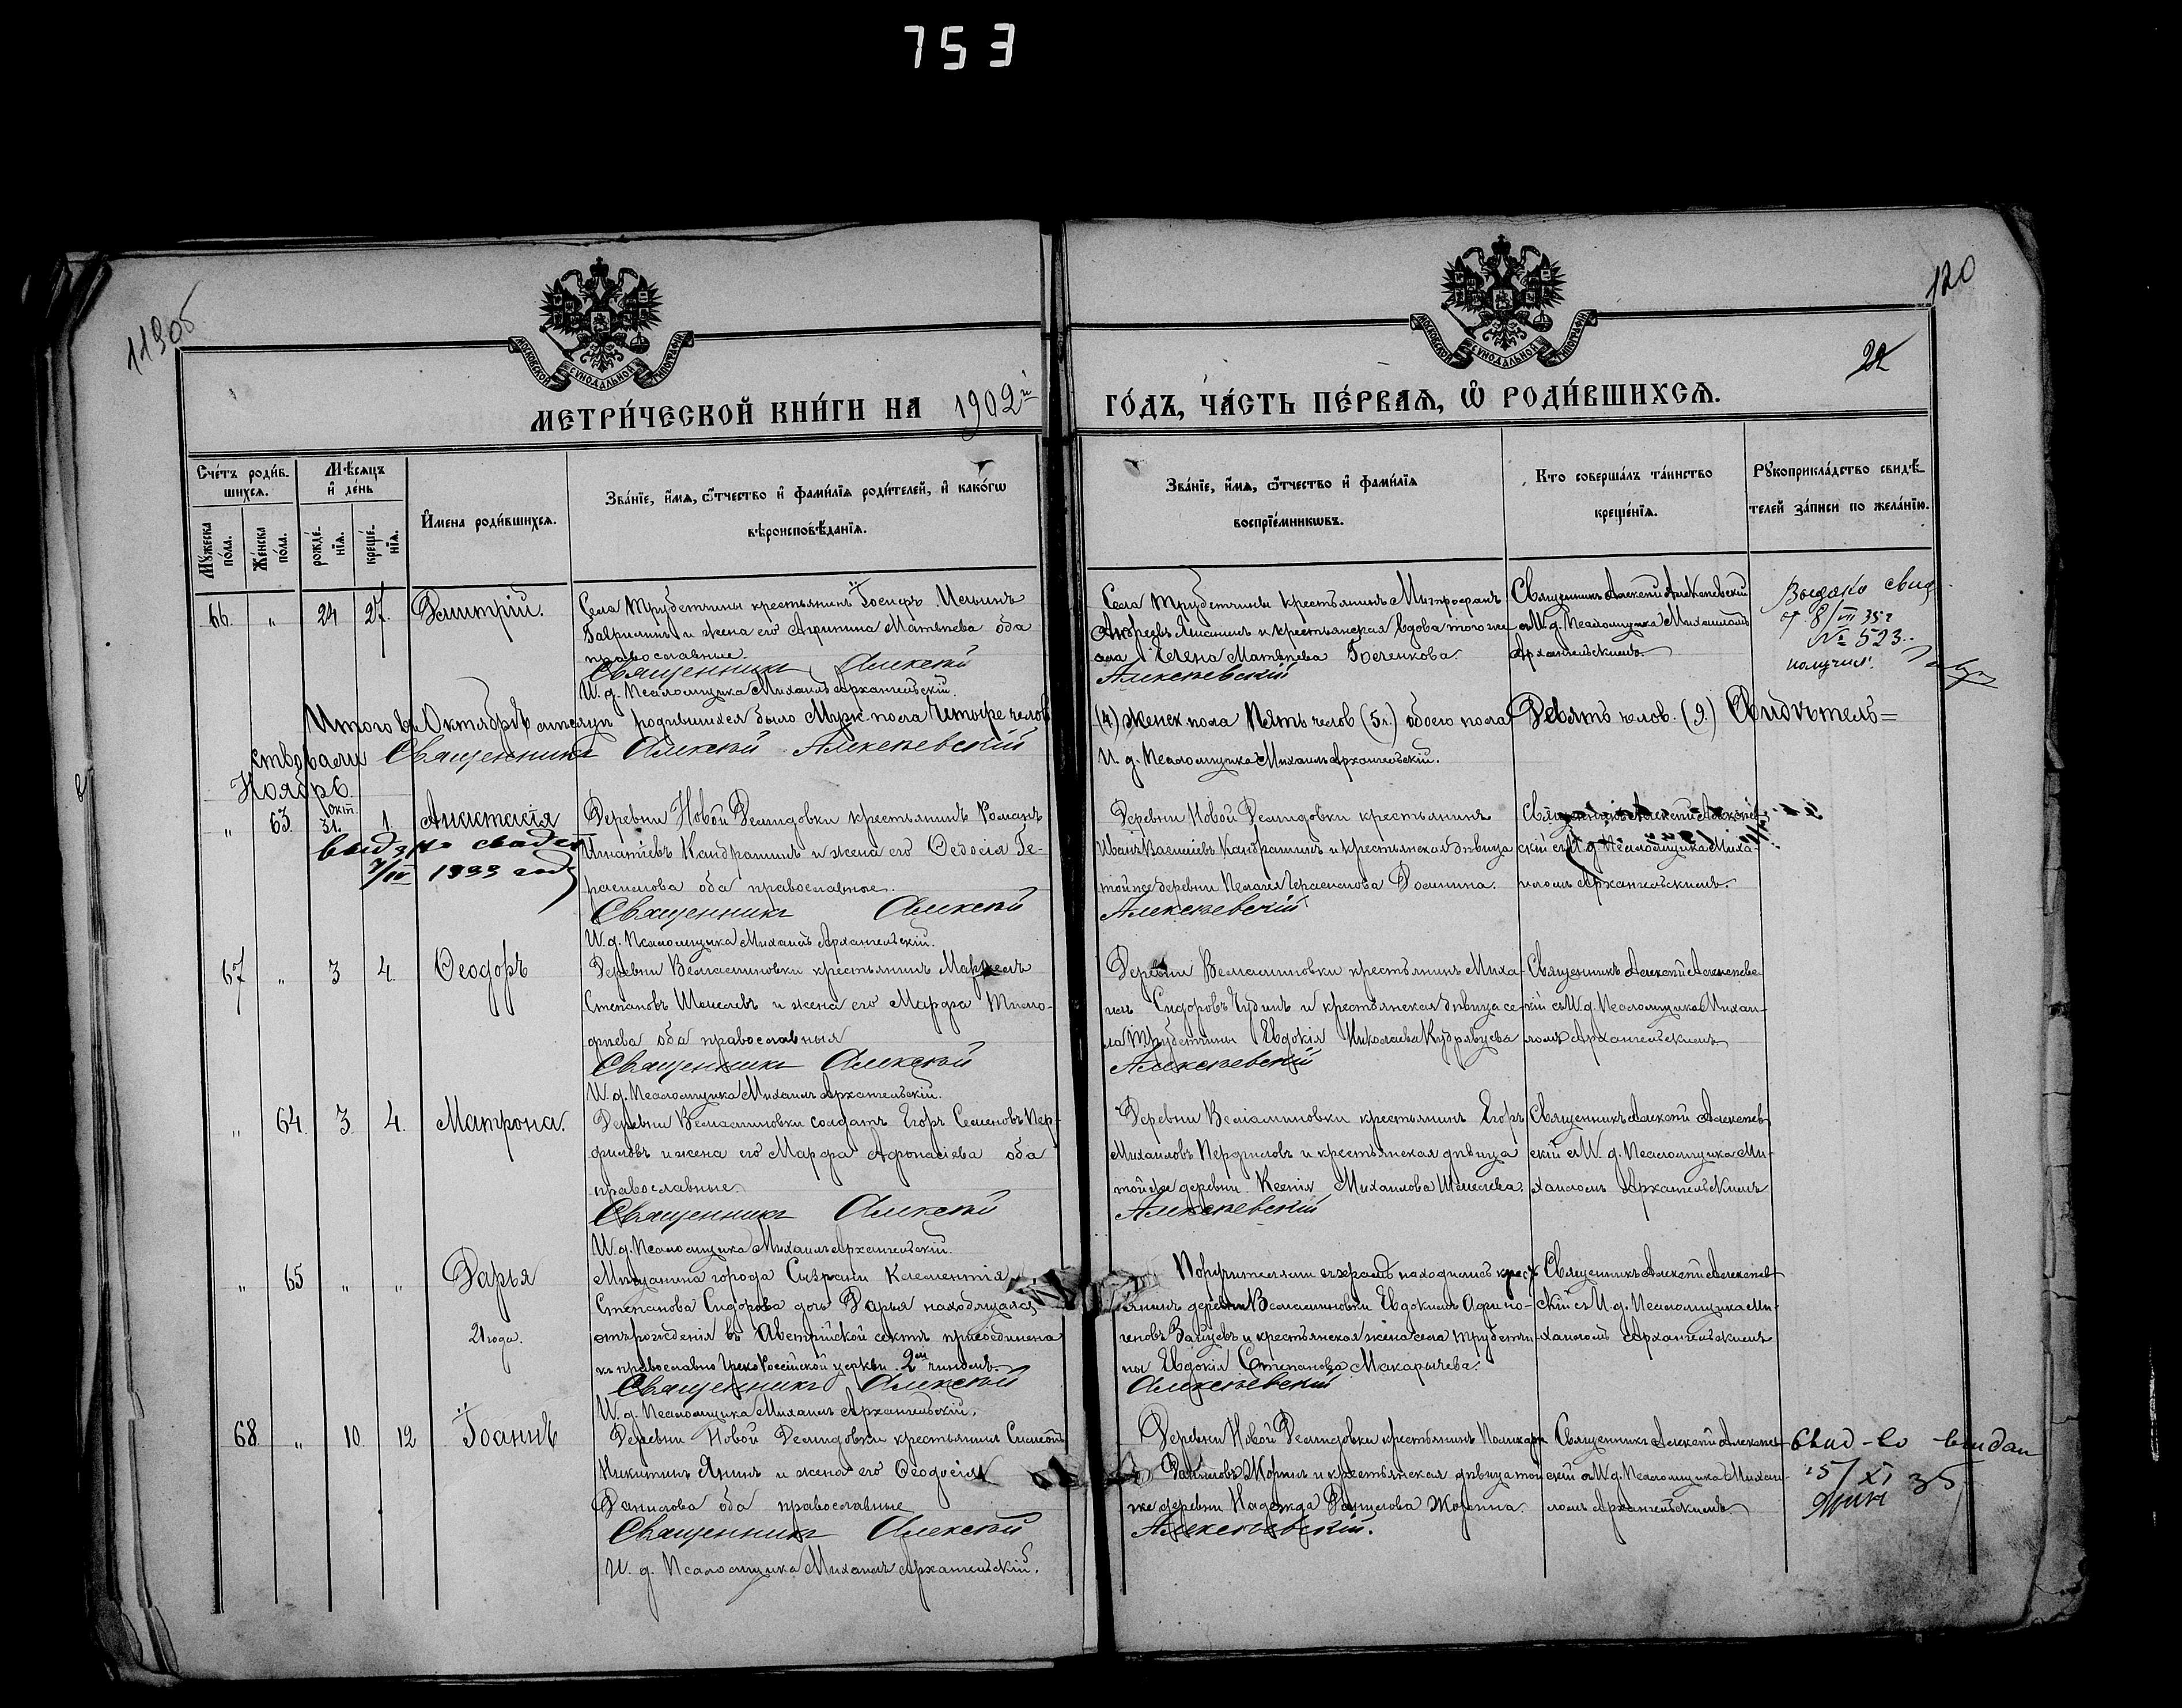 753
119об
120
22
МОСКОВСКОЙ СѴНОДАЛЬНОЙ ТИПОГРАФІИ
МОСКОВСКОЙ СѴНОДАЛЬНОЙ ТИПОГРАФІИ
МЕТРИ́ЧЕСКОЙ КНИ́ГИ НА 1902й ГО́ДЪ, ЧА́СТЬ ПЕ́РВАѦ, Ѡ҆ РОДИ́ВШИХСѦ.
Сче́тъ роди́в-
шихсѧ.
Мꙋ́жеска
по́ла.
Же́нска
по́ла.
Мѣ́сѧцъ
и҆ де́нь
рожде́-
нїѧ.
креще́-
нїѧ.
И҆мена роди́вшихсѧ.
Зва́нїе, и҆́мѧ, ѻ҆́тчество и҆ фами́лїѧ роди́телей, и҆ како́гѡ
вѣроисповѣ́данїѧ.
Зва́нїе, и҆́мѧ, ѻ҆́тчество и҆ фами́лїѧ
воспрїе́мникѡвъ.
Кто соверша́лъ та́инство
креще́нїѧ.
Рꙋкоприкла́дство свидѣ́-
телей за́писи по жела́нїю.
66. „ 24 27. Димитрій.
Села Трубетчины крестьянинъ Іосифъ Ильинъ
Гаврилинъ и жена его Агрипина Матвѣева оба
православные.
Священникъ Алексѣй Алексѣевскій
И. д. Псаломщика Михаилъ Архангельскій.
Села Трубетчины крестьянинъ Митрофанъ
Андреевъ Лисинъ и крестьянская вдова того же
села Елена Матвѣева
Священникъ Алексѣй Алексѣевскій
съ И. д. Псаломщика Михаиломъ
Архангельскимъ.
Выдано свид.
от 8/VII 35г
№ 523.
получил.
Итого въ Октябрѣ мѣсяцѣ родившихся было Муж. пола Четыре челов (4) женск. пола Пять челов (5.) обоего пола Девять челов. (9.) Свидѣтель=
ствовали Священникъ Алексѣй Алексѣевскій
И. д. Псаломщика Михаилъ Архангельскій.
Ноябрь.
„ 63. Окт. 31. 1 Анастасія
выдано свидет
7/IV 1933 год
Деревни Новой Демидовки крестьянинъ Романъ
Игнатіевъ Кандрашинъ и жена его Ѳедосія Ге-
расимова оба православные.
Священникъ Алексѣй Алексѣевскій
И. д. Псаломщика Михаилъ Архангельскій.
Деревни Новой Демидовки крестьянинъ
Иванъ Васильевъ Кандрашинъ и крестьянская дѣвица
той же деревни Пелагея Герасимова Фомина.
Священникъ Алексѣй Алексѣев-
скій съ И. д. Псаломщика Миха-
иломъ Архангельскимъ.
67 „ 3 4. Ѳеодоръ
Деревни Веньяминовки крестьянинъ Маркелъ
Степановъ Шмелевъ и жена его Марфа Тимо-
фѣева оба православныя
Священникъ Алексѣй Алексѣевскій
И. д. Псаломщика Михаилъ Архангельскій.
Деревни Веньяминовки крестьянинъ Миха-
илъ Сидоровъ Чудинъ и крестьянская дѣвица се-
ла Трубетчины Евдокія Николаева Кудрявцева
Священникъ Алексѣй Алексѣевс-
кій съ И. д. Псаломщика Михаи-
ломъ Архангельскимъ
„ 64. 3. 4. Матрона.
Деревни Веньяминовки солдатъ Егоръ Семеновъ Пер-
филовъ и жена его Марфа Афонасіева оба
православные.
Священникъ Алексѣй Алексѣевскій
И. д. Псаломщика Михаилъ Архангельскій.
Деревни Веньяминовки крестьянинъ Егоръ
Михаиловъ Перфиловъ и крестьянская дѣвица
той же деревни Ксенія Михаилова Шмелева.
Священникъ Алексѣй Алексѣев-
скій съ И. д. Псаломщика Ми-
хаиломъ Архангельскимъ
„ 65 „ „ Дарья
21 года.
Мѣщанина города Сызрани Клементія
Степанова Сидорова дочь Дарья находящаяся
отъ рожденія въ Австрійской сектѣ присоединена
къ православно Греко Россійской церкви 2мъ чиномъ.
Священникъ Алексѣй Алексѣевскій
И. д. Псаломщика Михаилъ Архангельскій.
Поручителями при находились крест
янинъ деревни Веньяминовки Евдокимъ Афино-
геновъ Зайцевъ и крестьянская жена села Трубетчи-
ны Евдокія Степанова Макарычева.
Священникъ Алексѣй Алексѣев-
скій съ И. д. Псаломщика Ми-
хаиломъ Архангельскимъ
68 „ 10 12 Іоаннъ
Деревни Новой Демидовки крестьянинъ Симеонъ
Никитинъ Янинъ и жена его Ѳеодосія
Данилова оба православные
Священникъ Алексѣй Алексѣевскій.
И. д. Псаломщика Михаилъ Архангельскій.
Деревни Новой Демидовки крестьянинъ Поликарп
Даниловъ Жоринъ и крестьянская дѣвица той
же деревни Надежда Данилова Жорина.
Священникъ Алексѣй Алексѣев-
скій съ И. д. Псаломщика Михаи-
ломъ Архангельскимъ.
свид-во выдан
15/XI 35